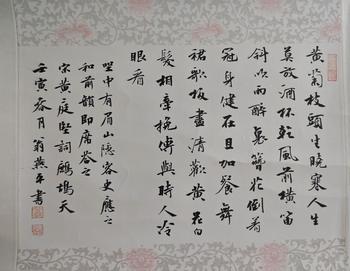 黃菊枝頭生曉寒人生
莫放酒杯乾風前橫笛
斜吹雨醉裏簪花倒着
冠身健在且加餐舞
裙歌板盡清歡黃花白
髮相牽挽與時人冷
眼看
坐中有眉山隱客史應之
和前韻即席答之
宋黃庭堅詞鷓鴣天
壬寅春月翁燕平書